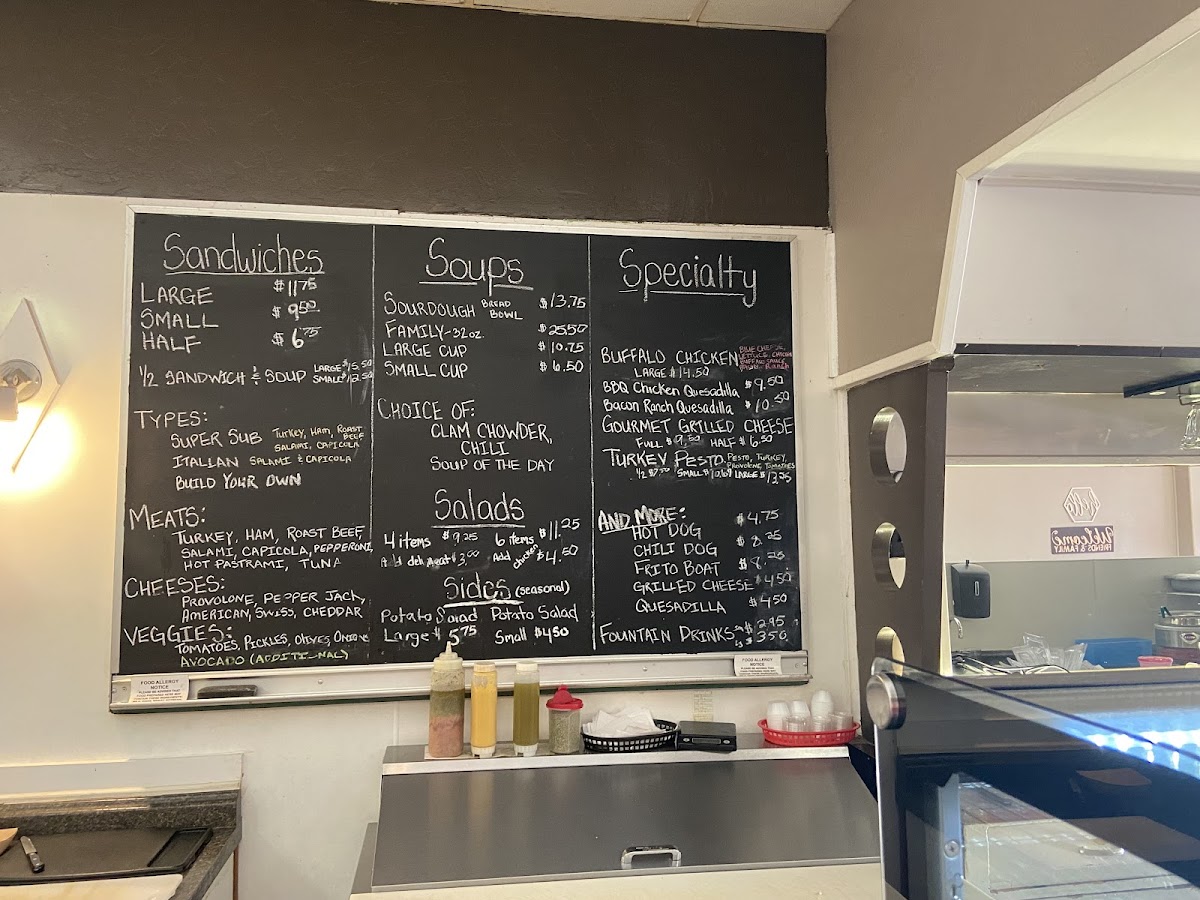 Sandwiches
LARGE $11.75
SMALL $9.50
HALF $6.75
1/2 SANDWICH & SOUP LARGE $15.50
SMALL $12.50
TYPES:
SUPER SUB TURKEY, HAM, ROAST BEEF
SALAMI, CAPICOLA
ITALIAN SALAMI & CAPICOLA
BUILD YOUR OWN
MEATS:
TURKEY, HAM, ROAST BEEF,
SALAMI, CAPICOLA, PEPPERONI,
HOT PASTRAMI, TUNA
CHEESES:
PROVOLONE, PEPPER JACK,
AMERICAN, SWISS, CHEDDAR
VEGGIES:
TOMATOES, PICKLES, OLIVES, ONIONS
AVOCADO (ADDITIONAL)
Soups
SOURDOUGH BREAD BOWL $13.75
FAMILY-32oz. $25.50
LARGE CUP $10.75
SMALL CUP $6.50
CHOICE OF:
CLAM CHOWDER,
CHILI
SOUP OF THE DAY
Salads
4 items $9.25 6 items $11.25
Add deli meat $3.00 Add chicken $4.50
Sides (seasonal)
Potato Salad Potato Salad
Large $5.75 Small $4.50
Specialty
BUFFALO CHICKEN BLUE CHEESE,
LETTUCE, CHICKEN
BUFFALO SAUCE
LARGE $14.50
BBQ Chicken Quesadilla $9.50
Bacon Ranch Quesadilla $10.50
GOURMET GRILLED CHEESE
FULL $9.50 HALF $6.50
TURKEY PESTO PESTO, TURKEY,
PROVOLONE TOMATOES
LARGE $13.25
AND MORE:
HOT DOG $4.75
CHILI DOG $8.25
FRITO BOAT $8.25
GRILLED CHEESE $4.50
QUESADILLA $4.50
FOUNTAIN DRINKS SM $2.95
LG $3.50
FOOD ALLERGY
NOTICE
FOOD ALLERGY
NOTICE
hello
Welcome
FRIENDS & FAMILY